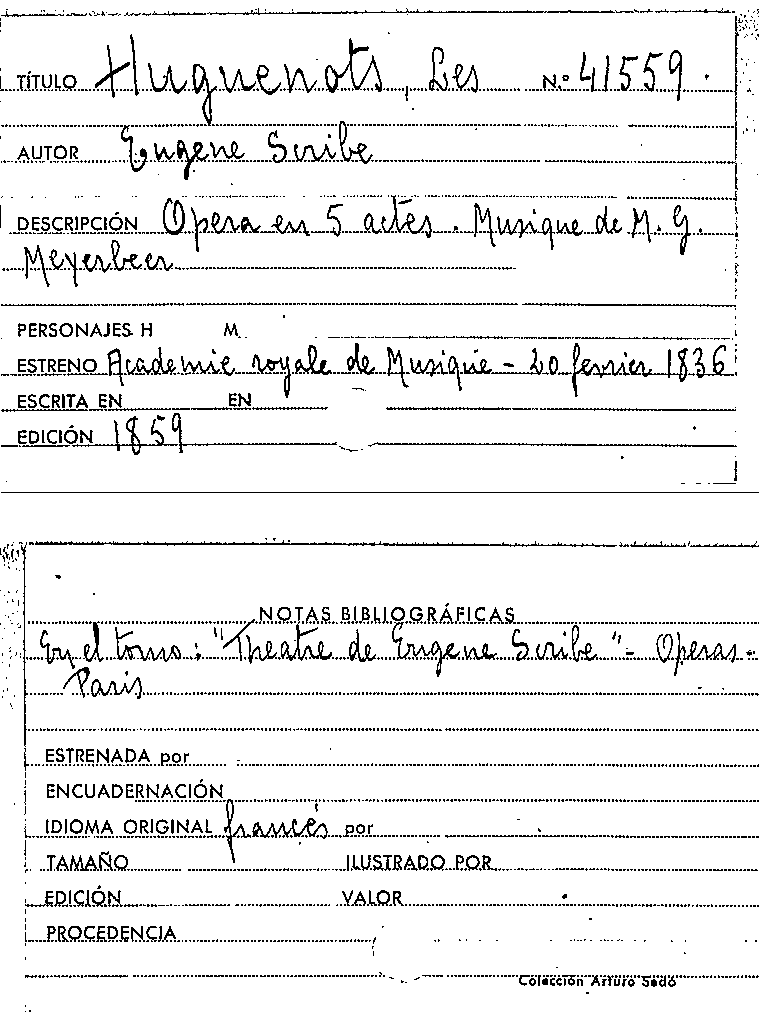 TÍTULO Huguenots, Les N.º 41559.
AUTOR Eugene Scribe
DESCRIPCIÓN Opera en 5 actes. Musique de M. G.
Meyerbeer
PERSONAJES H M.
ESTRENO Academie royale de Musique - 20 fevrier 1836
ESCRITA EN EN
EDICIÓN 1859
NOTAS BIBLIOGRÁFICAS
En el tomo: "Theatre de Eugene Scribe" - Operas -
Paris
ESTRENADA por
ENCUADERNACIÓN
IDIOMA ORIGINAL francés por
TAMAÑO ILUSTRADO POR
EDICIÓN VALOR
PROCEDENCIA
Colección Arturo Sedó